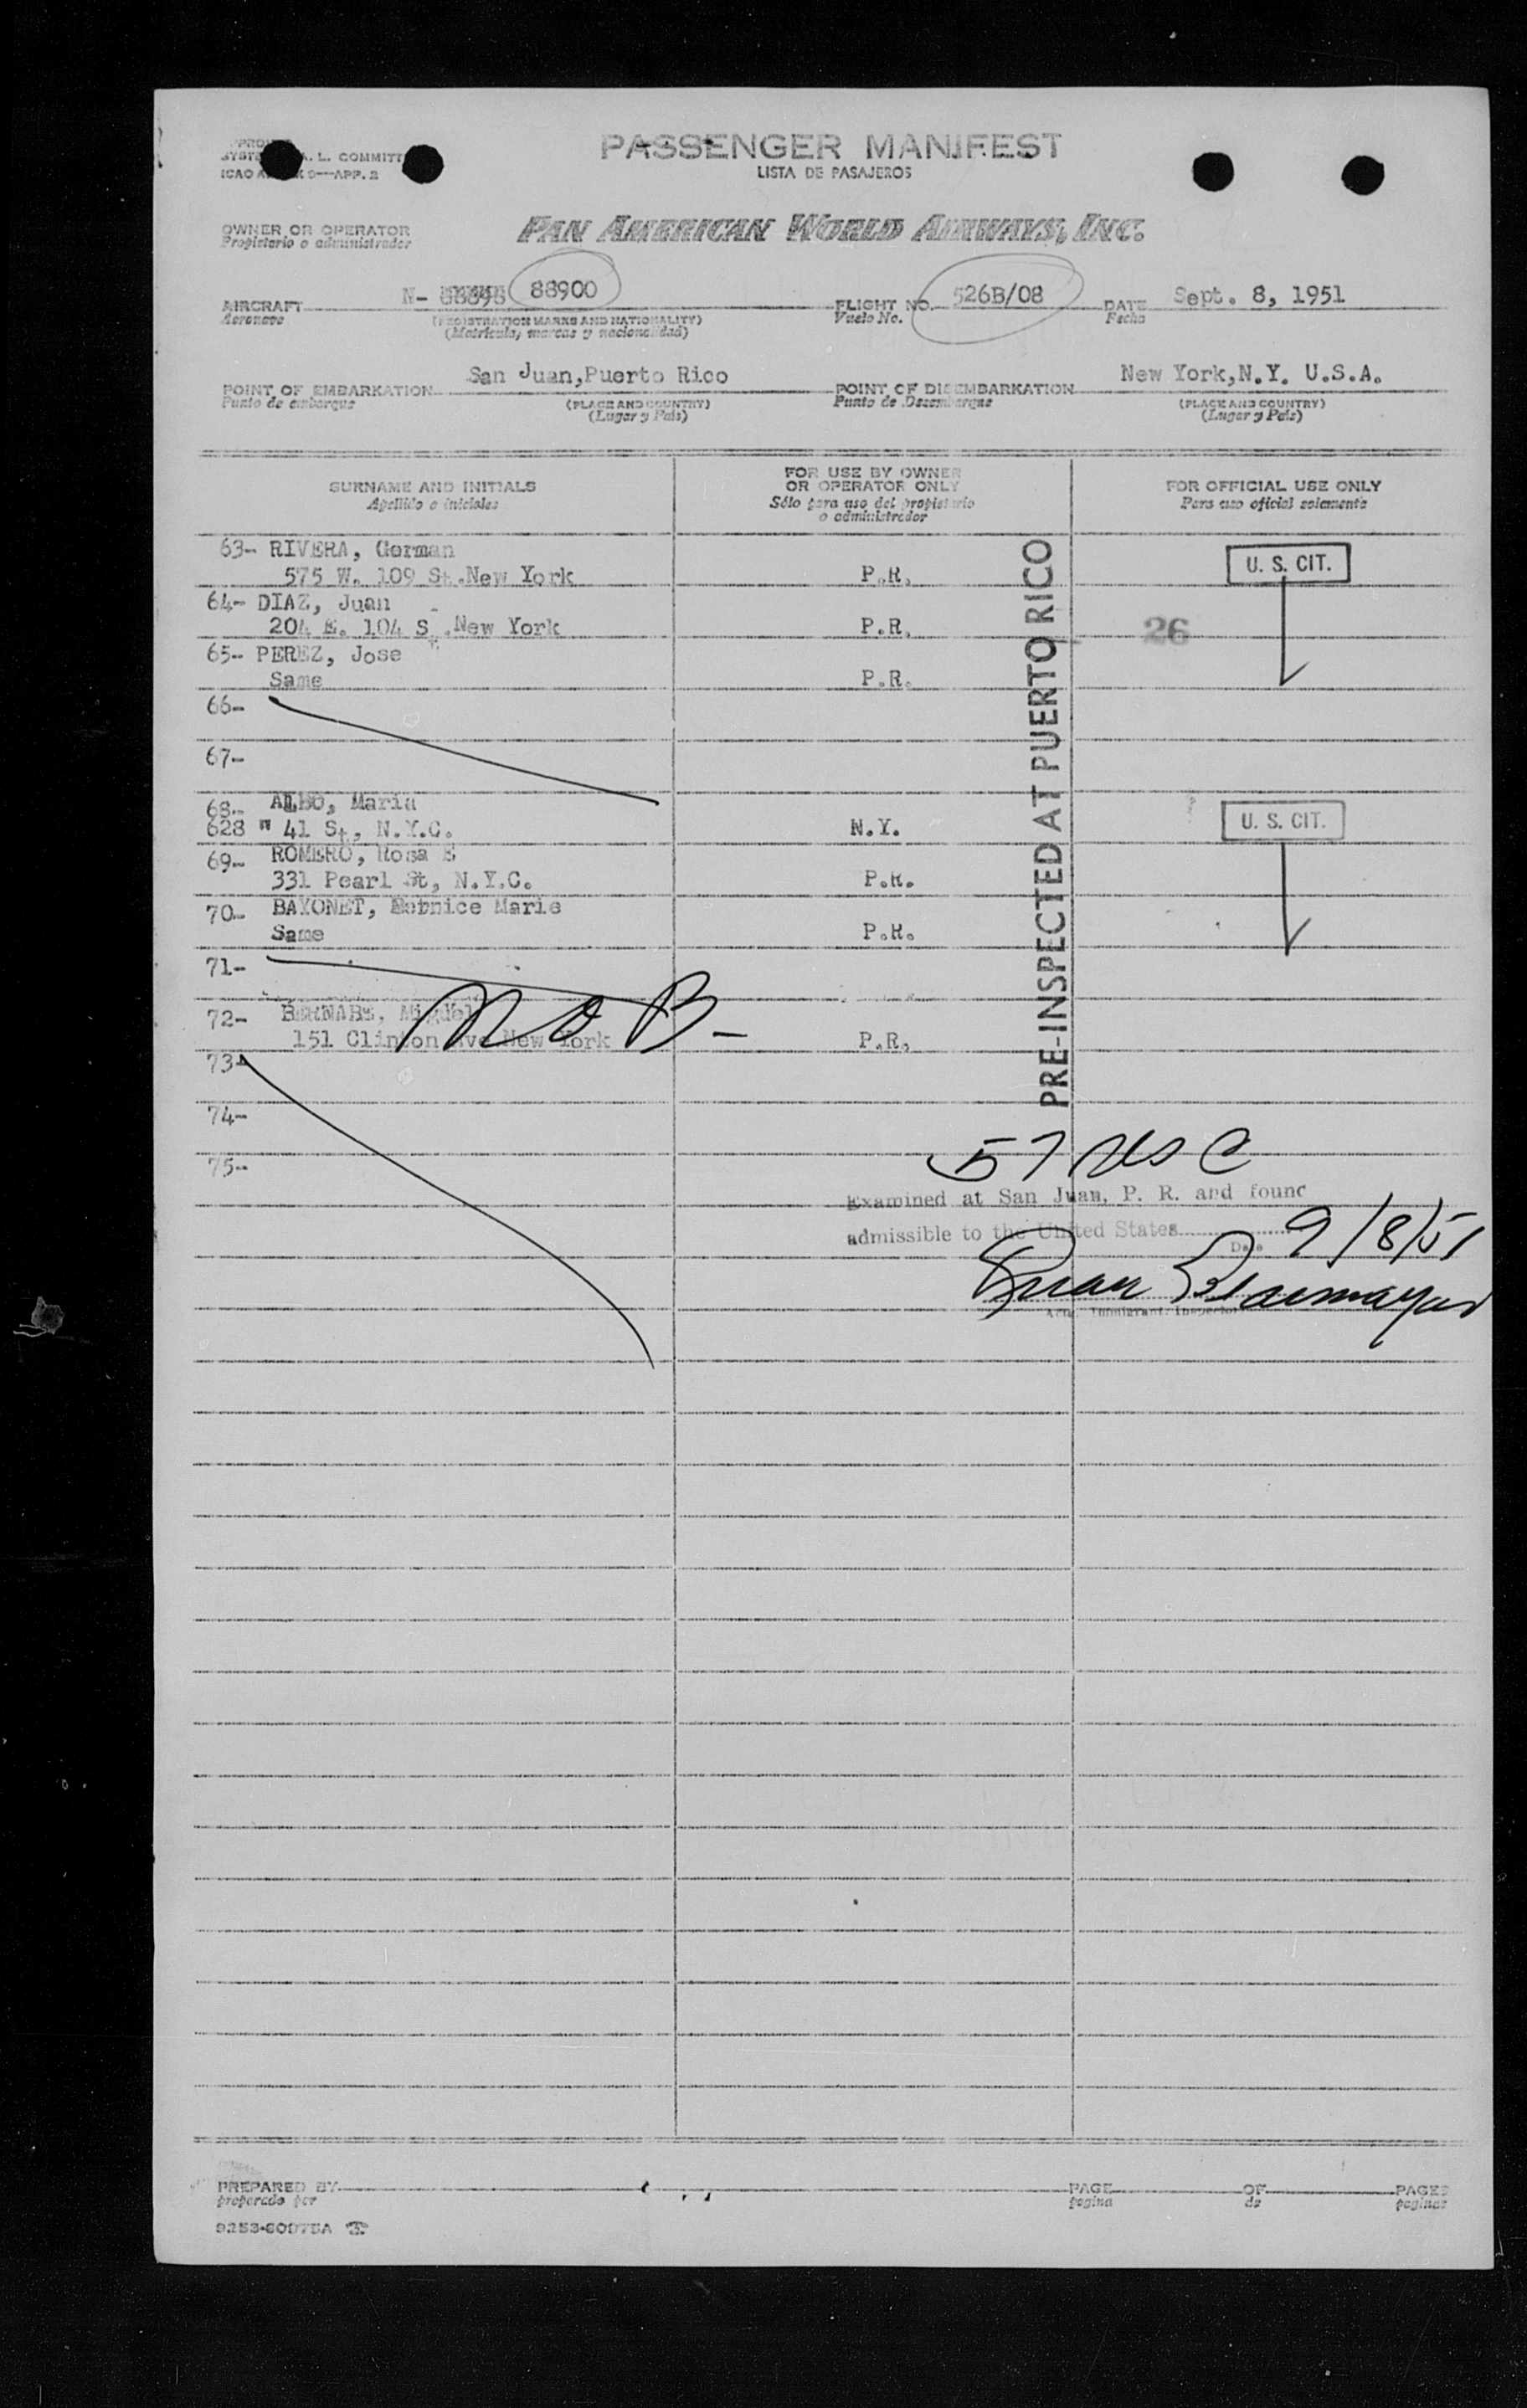 A. L. COMMITT
PASSENGER MANIFEST
LISTA DE PASAJEROS
OWNER OR OPERATOR
Propietario o administrador
PAN AMERICAN WORLD AIRWAYS, INC.
AIRCRAFT N- 88900 FLIGHT NO. 526B/08 DATE Sept. 8, 1951
Aeronave (REGISTRATION MARKS AND NATIONALITY) Vuelo No. Fecha
(Matrícula, marcas y nacionalidad)
POINT OF EMBARKATION San Juan,Puerto Rico POINT OF DISEMBARKATION New York,N.Y. U.S.A.
Punto de embarque (PLACE AND COUNTRY) Punto de Desembarque (PLACE AND COUNTRY)
(Lugar y País) (Lugar y País)
SURNAME AND INITIALS FOR USE BY OWNER OR OPERATOR ONLY FOR OFFICIAL USE ONLY
Apellido e iniciales Sólo para uso del propietario o administrador Para uso oficial solamente
63- RIVERA, German
575 W. 109 St.New York P.R. U. S. CIT.
64- DIAZ, Juan
204 E. 104 St.New York P.R. 26
65- PEREZ, Jose
Same P.R.
66-
67-
68- ALBO, Maria
628 W 41 St, N.Y.C. N.Y. U. S. CIT.
69- ROMERO, Rosa E
331 Pearl St, N.Y.C. P.R.
70- BAYONET, Marie
Same P.R.
71-
72- BERNABE, Miguel N O B-
151 Clinton Ave New York P.R.
73-
74-
75-
PRE-INSPECTED AT PUERTO RICO
57 US C
Examined at San Juan, P. R. and found
admissible to the United States 9/8/51
Date
Juan
Immigrant Inspector
PREPARED BY PAGE OF PAGES
preparado por pagina de paginas